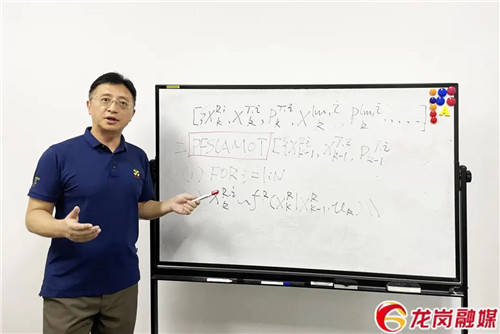 [{X_k^{R,i}, X_k^{T,i}, P_k^{T,i}, X_k^{lm,i}, P_k^{lm,i}, ....}]
= PFSLAMOT [{X_{k-1}^{R,i}, X_{k-1}^{T,i}, P_{k-1}^{T,i}
(1) FOR i=1:N
X_k^{R,i} ~ f^2(X_k^R|X_{k-1}^R, u_k)
A
龙岗融媒